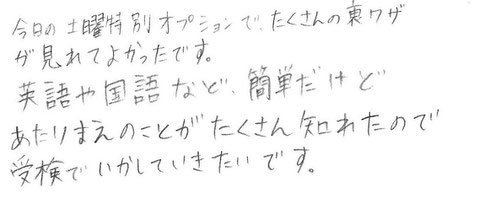 今日の土曜特別オプションで、たくさんの裏ワザ
が見れてよかったです。
英語や国語など、簡単だけど
あたりまえのことがたくさん知れたので
受検でいかしていきたいです。